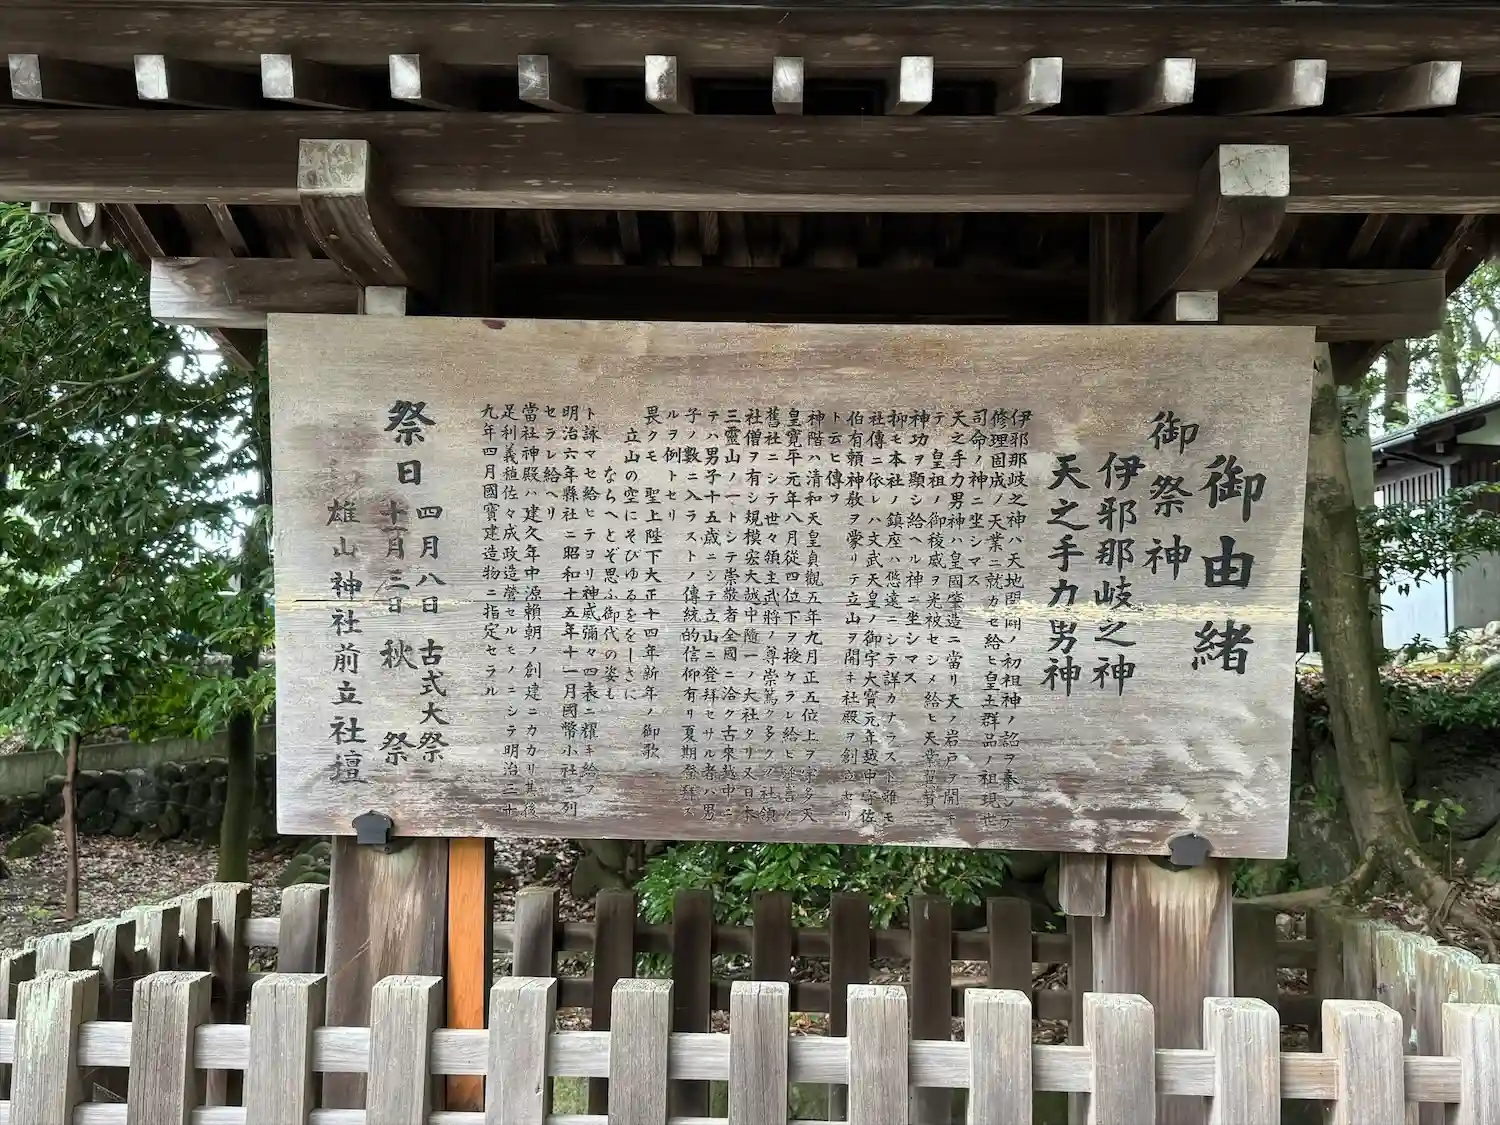 御由緒
御祭神
伊邪那岐之神
天之手力男神
伊邪那岐之神ハ天地開闢ノ初祖神ノ詔ヲ奉シテ
修理固成ノ天業ニ就カセ給ヒ皇土群品ノ祖現世
司命ノ神ニ坐シマス
天之手力男神ハ皇國肇造ニ當リ天ノ岩戸ヲ開キ
テ皇祖ノ御稜威ヲ光被セシメ給ヒ天業翼賛ニ
神功ヲ顯シ給ヘル神ニ坐シマス
抑モ本社ノ鎮座ハ悠遠ニシテ詳カナラスト雖モ
社傳ニ依レハ文武天皇ノ御宇大寶元年越中守佐
伯有頼神教ヲ蒙リテ立山ヲ開キ社殿ヲ創立セリ
ト云ヒ傳フ
神階ハ清和天皇貞觀五年九月正五位上ヲ宇多天
皇寛平元年八月從四位下ヲ授ケラレ給ヒ延喜ノ
舊社ニシテ世々領主武將ノ尊崇篤ク多クノ社領
社僧ヲ有シ規模宏大越中隨一ノ大社タリ又日本
三靈山ノ一トシテ崇敬者全國ニ洽ク古來越中ニ
テハ男子十五歳ニシテ立山ニ登拜セサル者ハ男
子ノ數ニ入ラストノ傳統的信仰有リ夏期登拜ス
ルヲ例トセリ
畏クモ 聖上陛下大正十四年新年ノ御歌
立山の空にそびゆるををしさに
ならへとぞ思ふ御代の姿も
ト詠マセ給ヒテヨリ神威彌々四表ニ耀キ給フ
明治六年縣社ニ昭和十五年十一月國幣小社ニ列
セラレ給ヘリ
當社神殿ハ建久年中源賴朝ノ創建ニカカリ其後
足利義稙佐々成政造營セルモノニシテ明治三十
九年四月國寶建造物ニ指定セラル
祭日 四月八日 古式大祭
十一月三日 秋祭
雄山神社前立社壇